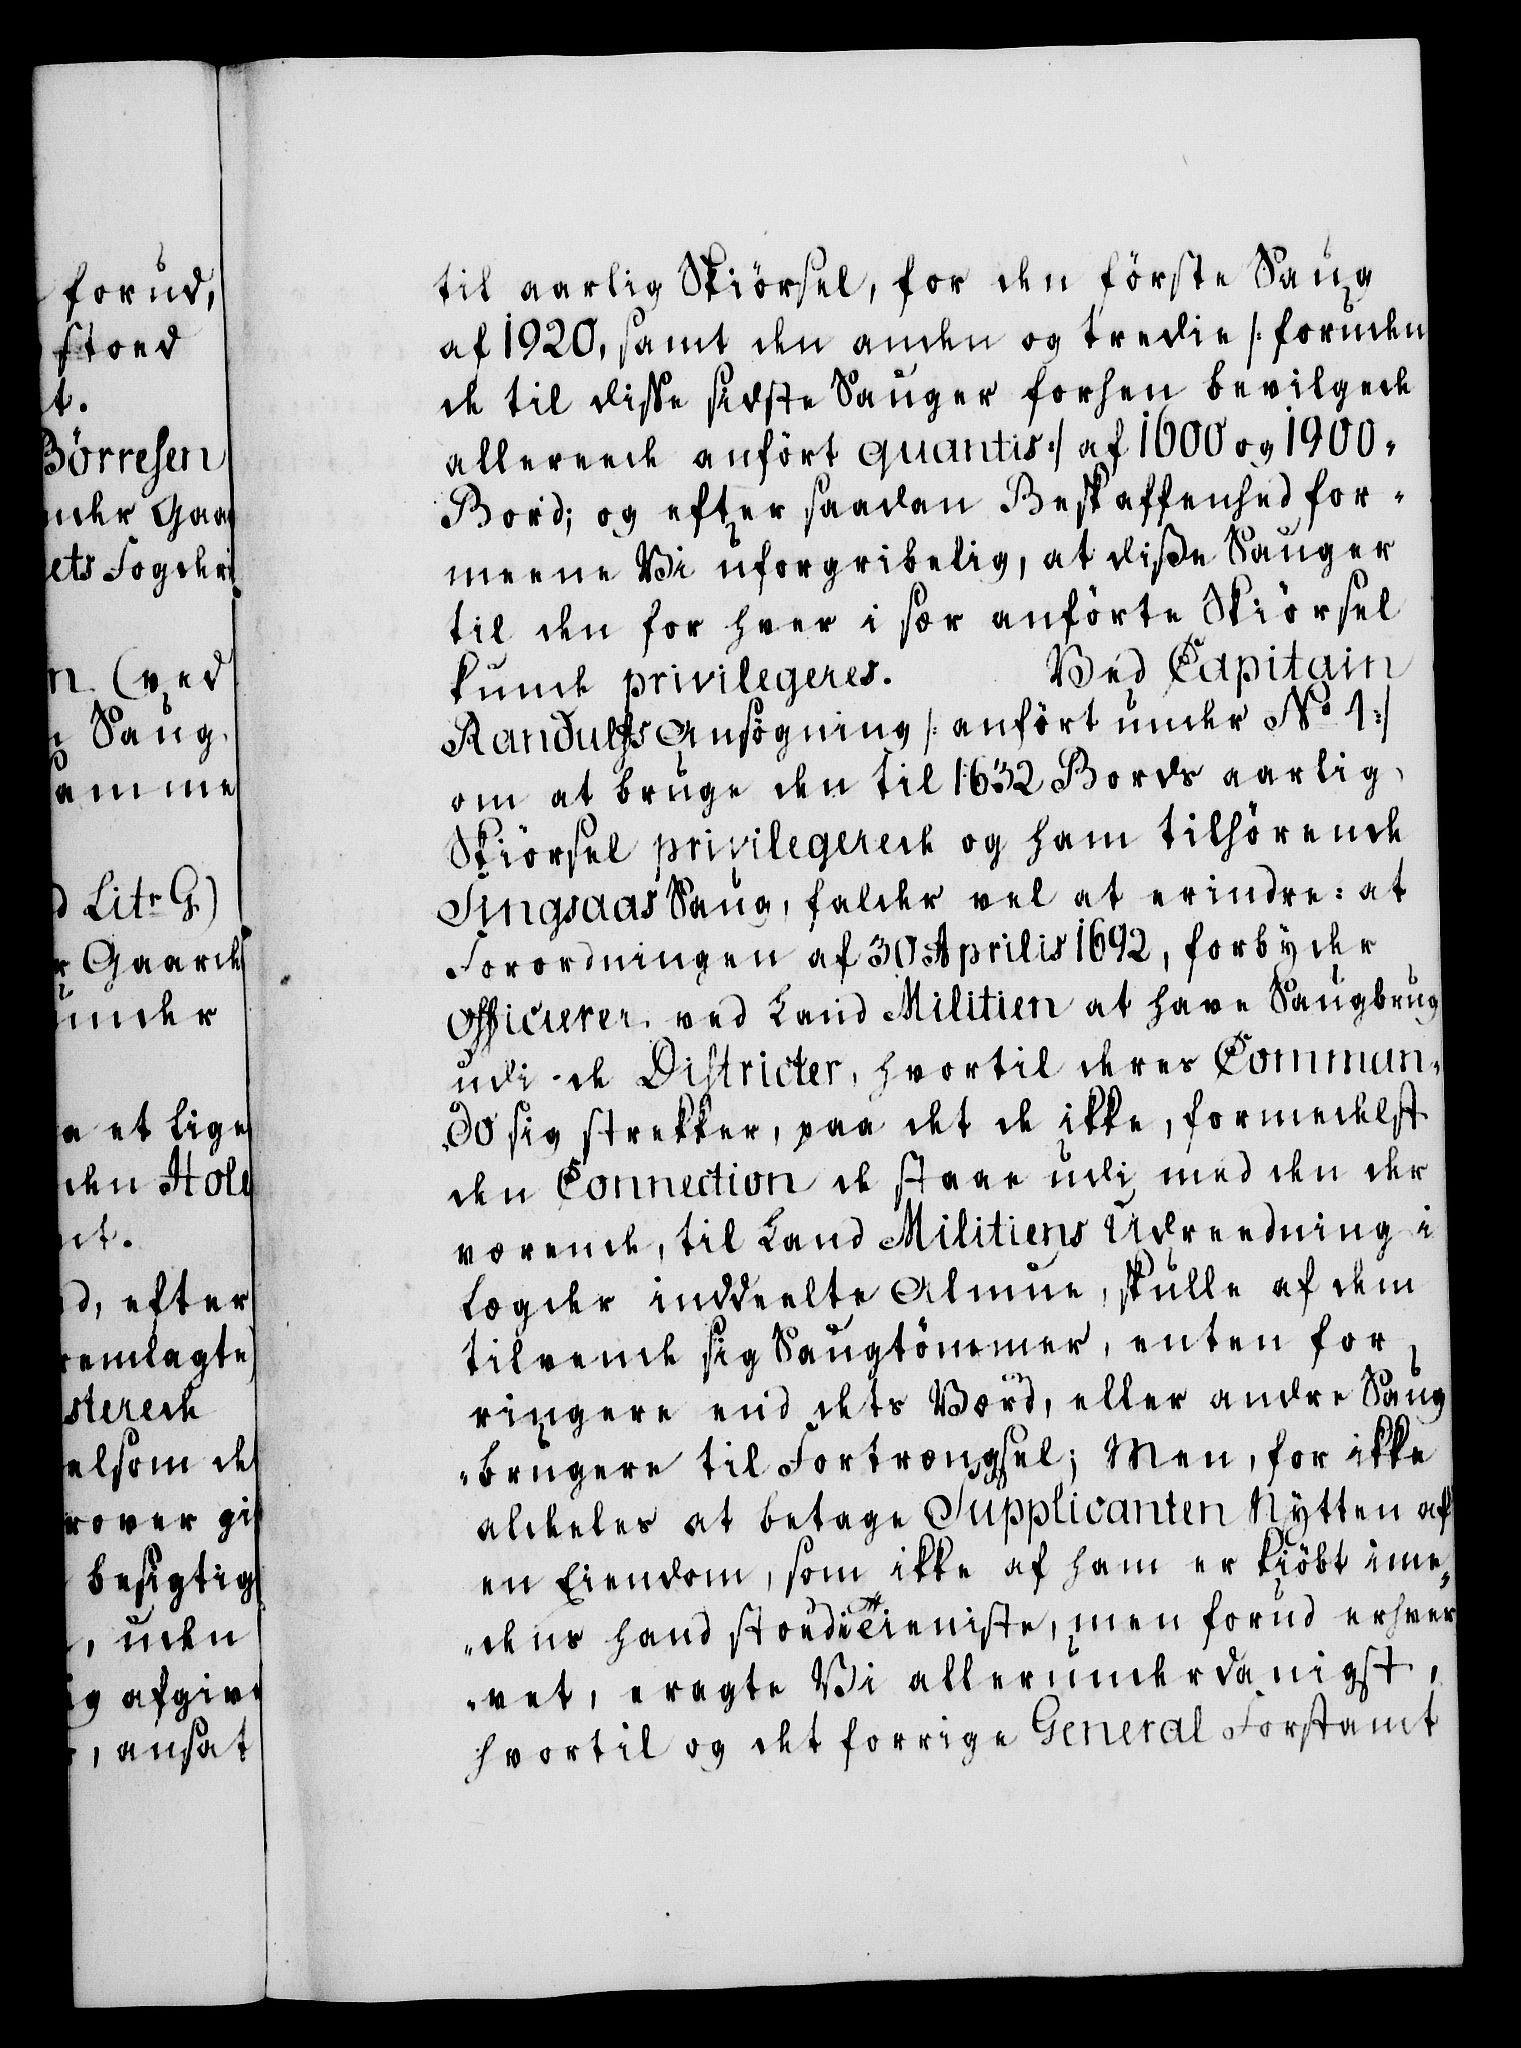 forud,
stoed
t.
Börresen
nder Gaa
ets Fogderi
n (ved
Saug.
amme
d Litr G)
r Gaarde
under
a et lige
den Hole
nt.
d, efter
remlagte)
sterede
elsom de
rover gi
besigtig
, uden
ig afgive
, ansat
til aarlig Skiörsel, for den förste Saug
af 1920, samt den anden og tredie /: foruden
de til disse sidste Sauger forhen bevilgede
allereede anfört quantis :/ af 1600 og 1900
Bord; og efter saadan Beskaffenhed for-
meene Vi uforgribelig, at disse Sauger
til den for hver i sær anförte Skiörsel
kunde privilegeres. Ved Capitain
Randulfs Ansögning /: anfört under No 1 :/
om at bruge den til 1632 Bords aarlig
Skiörsel privilegerede og ham tilhörende
Singsaas Saug, falder vel at erindre: at
Forordningen af 30 Aprilis 1692, forbyder
Officierer ved Land Militien at have Saugbrug
udi de Districter, hvortil deres Comman-
do sig strekker, paa det de ikke, formedelst
den Connection de staae udi med den der
værende, til Land Militiens Udreedning i
Lægder inddeelte Almue, skulle af dem
tilvende sig Saugtömmer, enten for
ringere end dets Værd, eller andre Saug
-brugere til Fortrængsel; Men, for ikke
aldeles at betage Supplicanten Nytten af
en Eiendom, som ikke af ham er kiöbt ime-
-dens hand stoed i Tieniste, men forud erhver
-vet, eragte Vi allerunderdanigst,
hvortil og det forrige General Forstamt